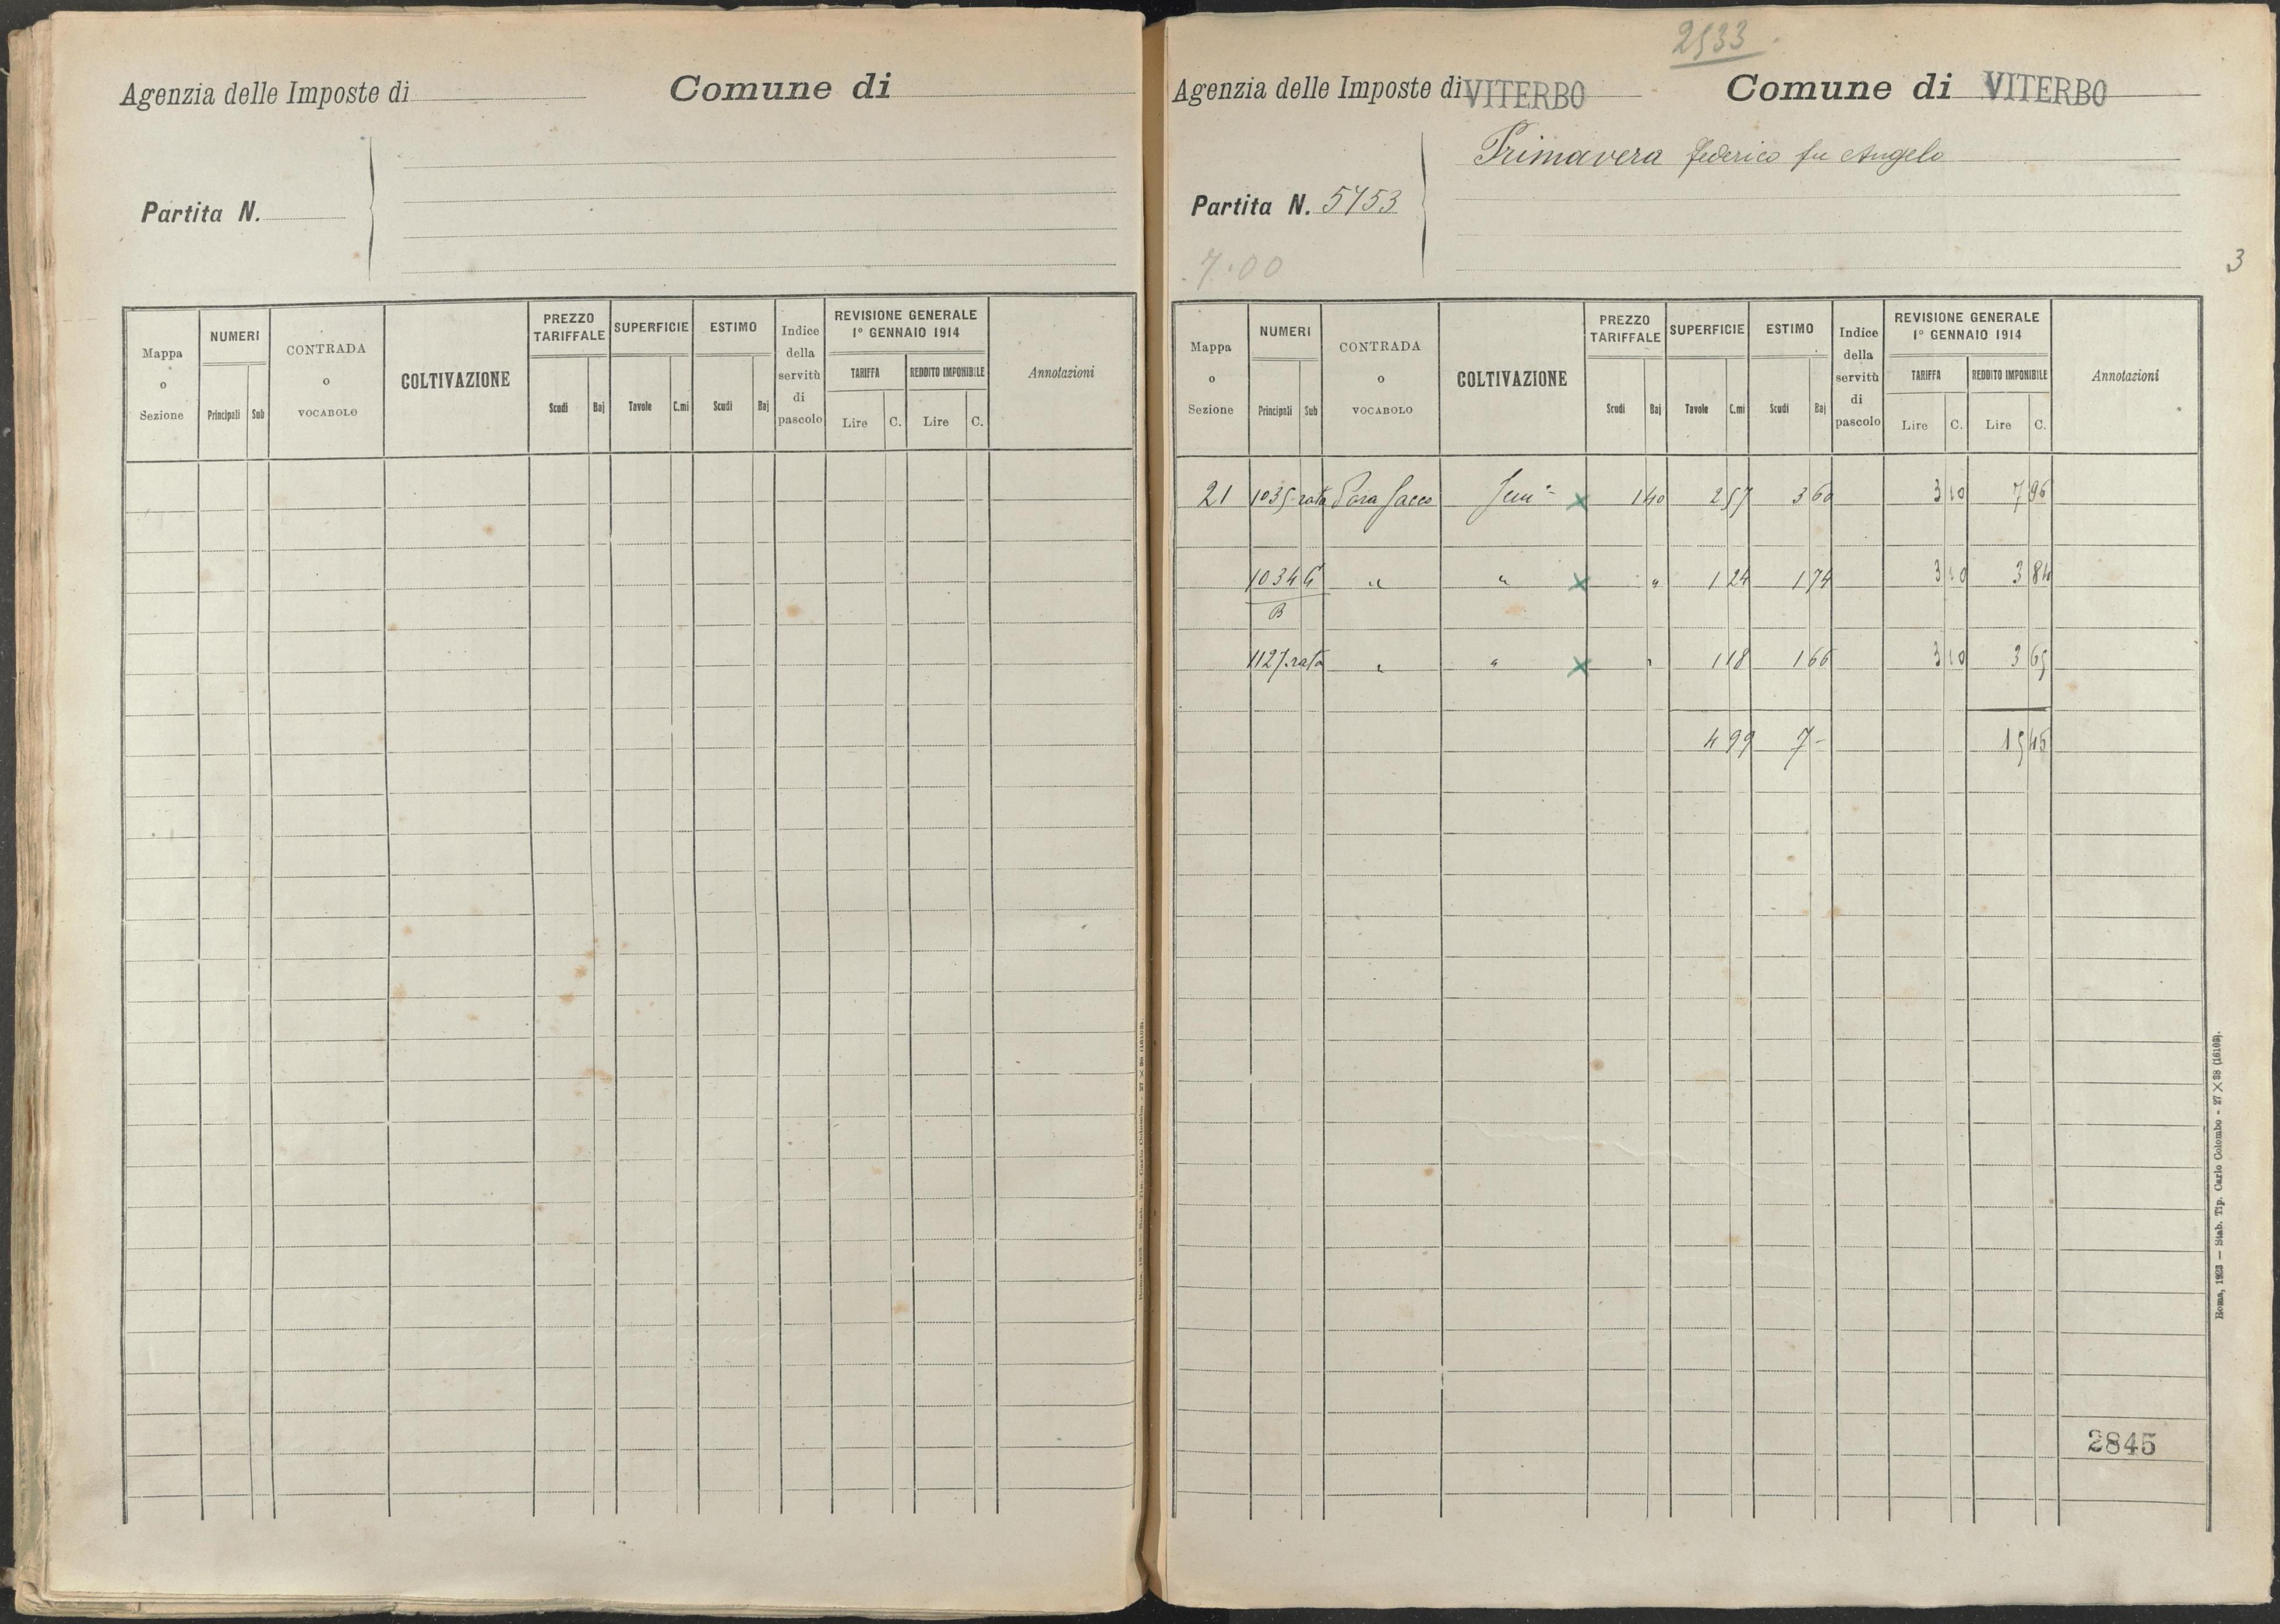 Agenzia delle Imposte di Comune di
Partita N.
Mappa o Sezione
NUMERI
Principali Sub
CONTRADA o VOCABOLO
COLTIVAZIONE
PREZZO TARIFFALE
Scudi Baj
SUPERFICIE
Tavole C.mi
ESTIMO
Scudi Baj
Indice della servitù di pascolo
REVISIONE GENERALE
1° GENNAIO 1914
TARIFFA REDDITO IMPONIBILE
Lire C. Lire C.
Annotazioni
2533
Agenzia delle Imposte di VITERBO Comune di VITERBO
Primavera Federico fu Angelo
Partita N. 5453
7.00
3
Mappa o Sezione
NUMERI
Principali Sub
CONTRADA o VOCABOLO
COLTIVAZIONE
PREZZO TARIFFALE
Scudi Baj
SUPERFICIE
Tavole C.mi
ESTIMO
Scudi Baj
Indice della servitù di pascolo
REVISIONE GENERALE
1° GENNAIO 1914
TARIFFA REDDITO IMPONIBILE
Lire C. Lire C.
Annotazioni
21 1035 rata Sem° x 1 40 2 57 3 60 3 10 7 96
1034 " " x " 1 24 1 74 3 10 3 84
B
1127 rata " " x " 1 18 1 66 3 10 3 65
4 99 7 - 15 45
2845
Roma, 1923 — Stab. Tip. Carlo Colombo - 27 X 38 (16103).